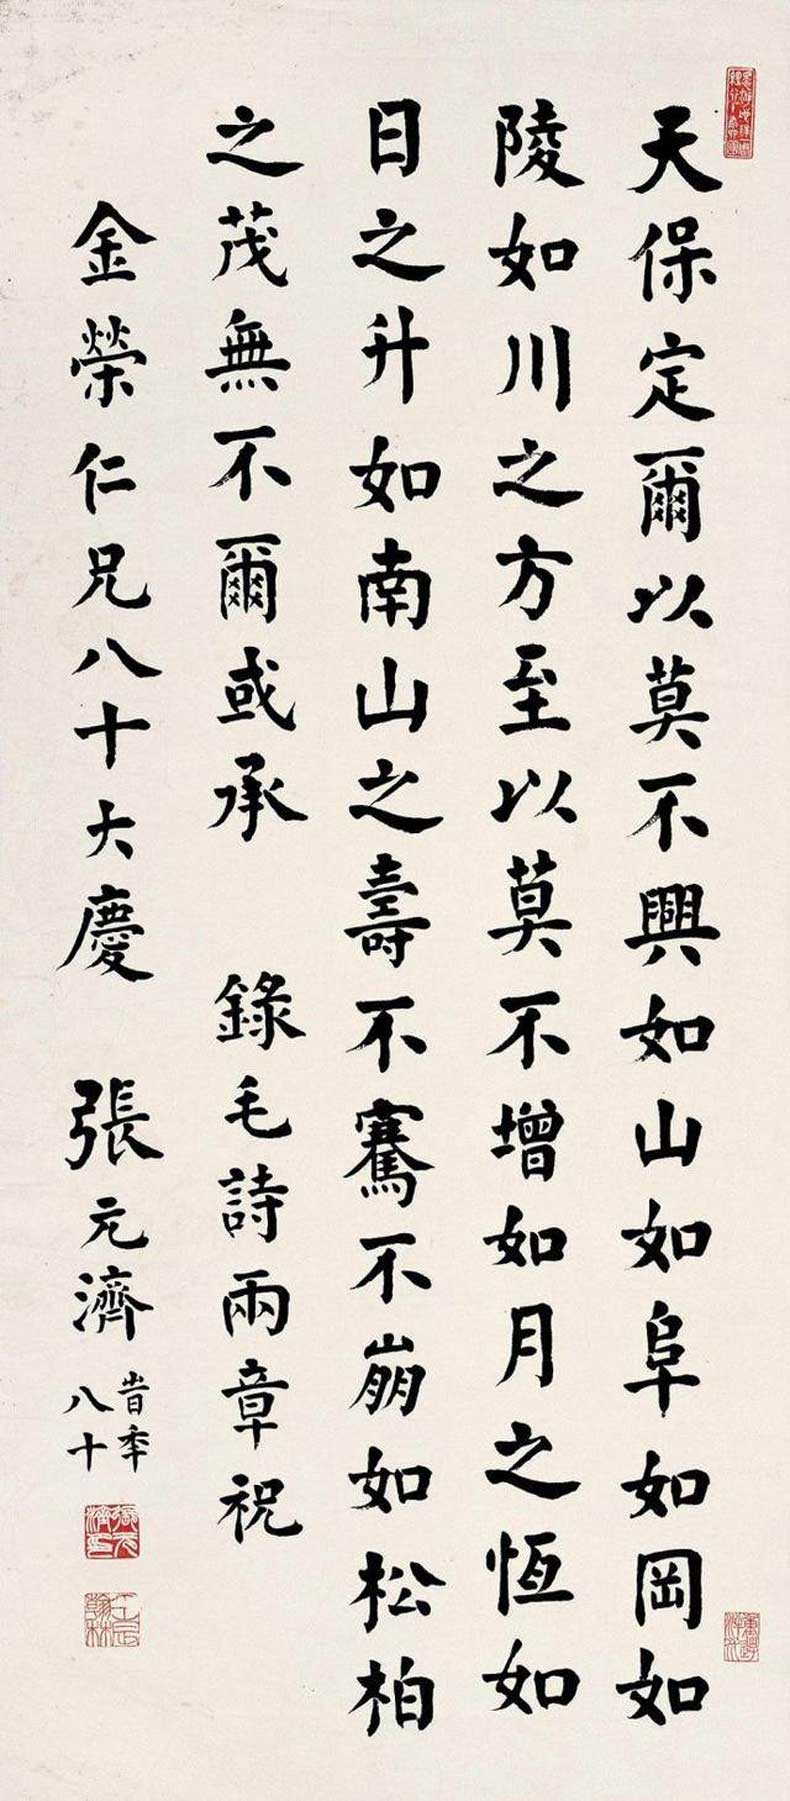 天保定爾以莫不興如山如阜如岡如
陵如川之方至以莫不增如月之恆如
日之升如南山之壽不騫不崩如松柏
之茂無不爾或承 錄毛詩兩章祝
金榮仁兄八十大慶 張元濟 時年八十
張元濟印
壬辰翰林